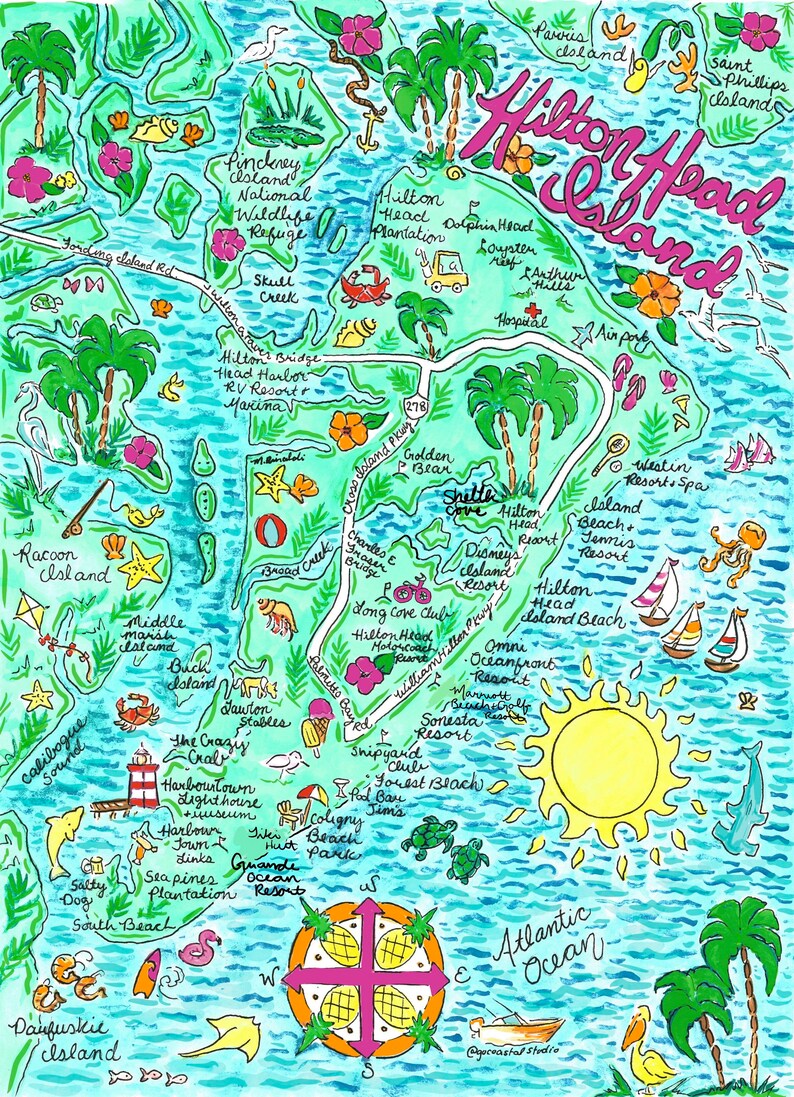 Parris
Island
Saint
Phillips
Island
Hilton Head
Island
Pinckney
Island
National
Wildlife
Refuge
Hilton
Head
Plantation
Dolphin Head
Oyster
reef
Arthur
Hills
Fording Island Rd
Skull
Creek
Hospital
Airport
Bridge
Hilton
Head Harbor
RV Resort +
Marina
278
Cross Island Pkwy
Golden
Bear
M. Rinaldi
Westin
Resort + Spa
Shelter
Cove
Hilton
Head
Resort
Island
Beach +
Tennis
Resort
Racoon
Island
Broad Creek
Charles E
Frazer
Bridge
Disneys
Island
Resort
Hilton
Head
Island Beach
Long Cove Club
Middle
marsh
Island
Hilton Head
Motorcoach
Resort
William Hilton Pkwy
Omni
Oceanfront
Resort
Buck
Island
Palmetto Bay Rd
Marriott
Beach + Golf
Resort
Lawton
Stables
Sonesta
Resort
Calibogue
Sound
The Crazy
Crab
Shipyard
Club
Forest Beach
Harbourtown
Lighthouse
+ museum
Pool Bar
Jims
Coligny
Beach
Park
Tiki
Hut
Harbour
Town
Links
Grande
Ocean
Resort
Salty
Dog
Sea pines
Plantation
South Beach
N
W
E
S
Atlantic
Ocean
Daufuskie
Island
@gocoastalstudio